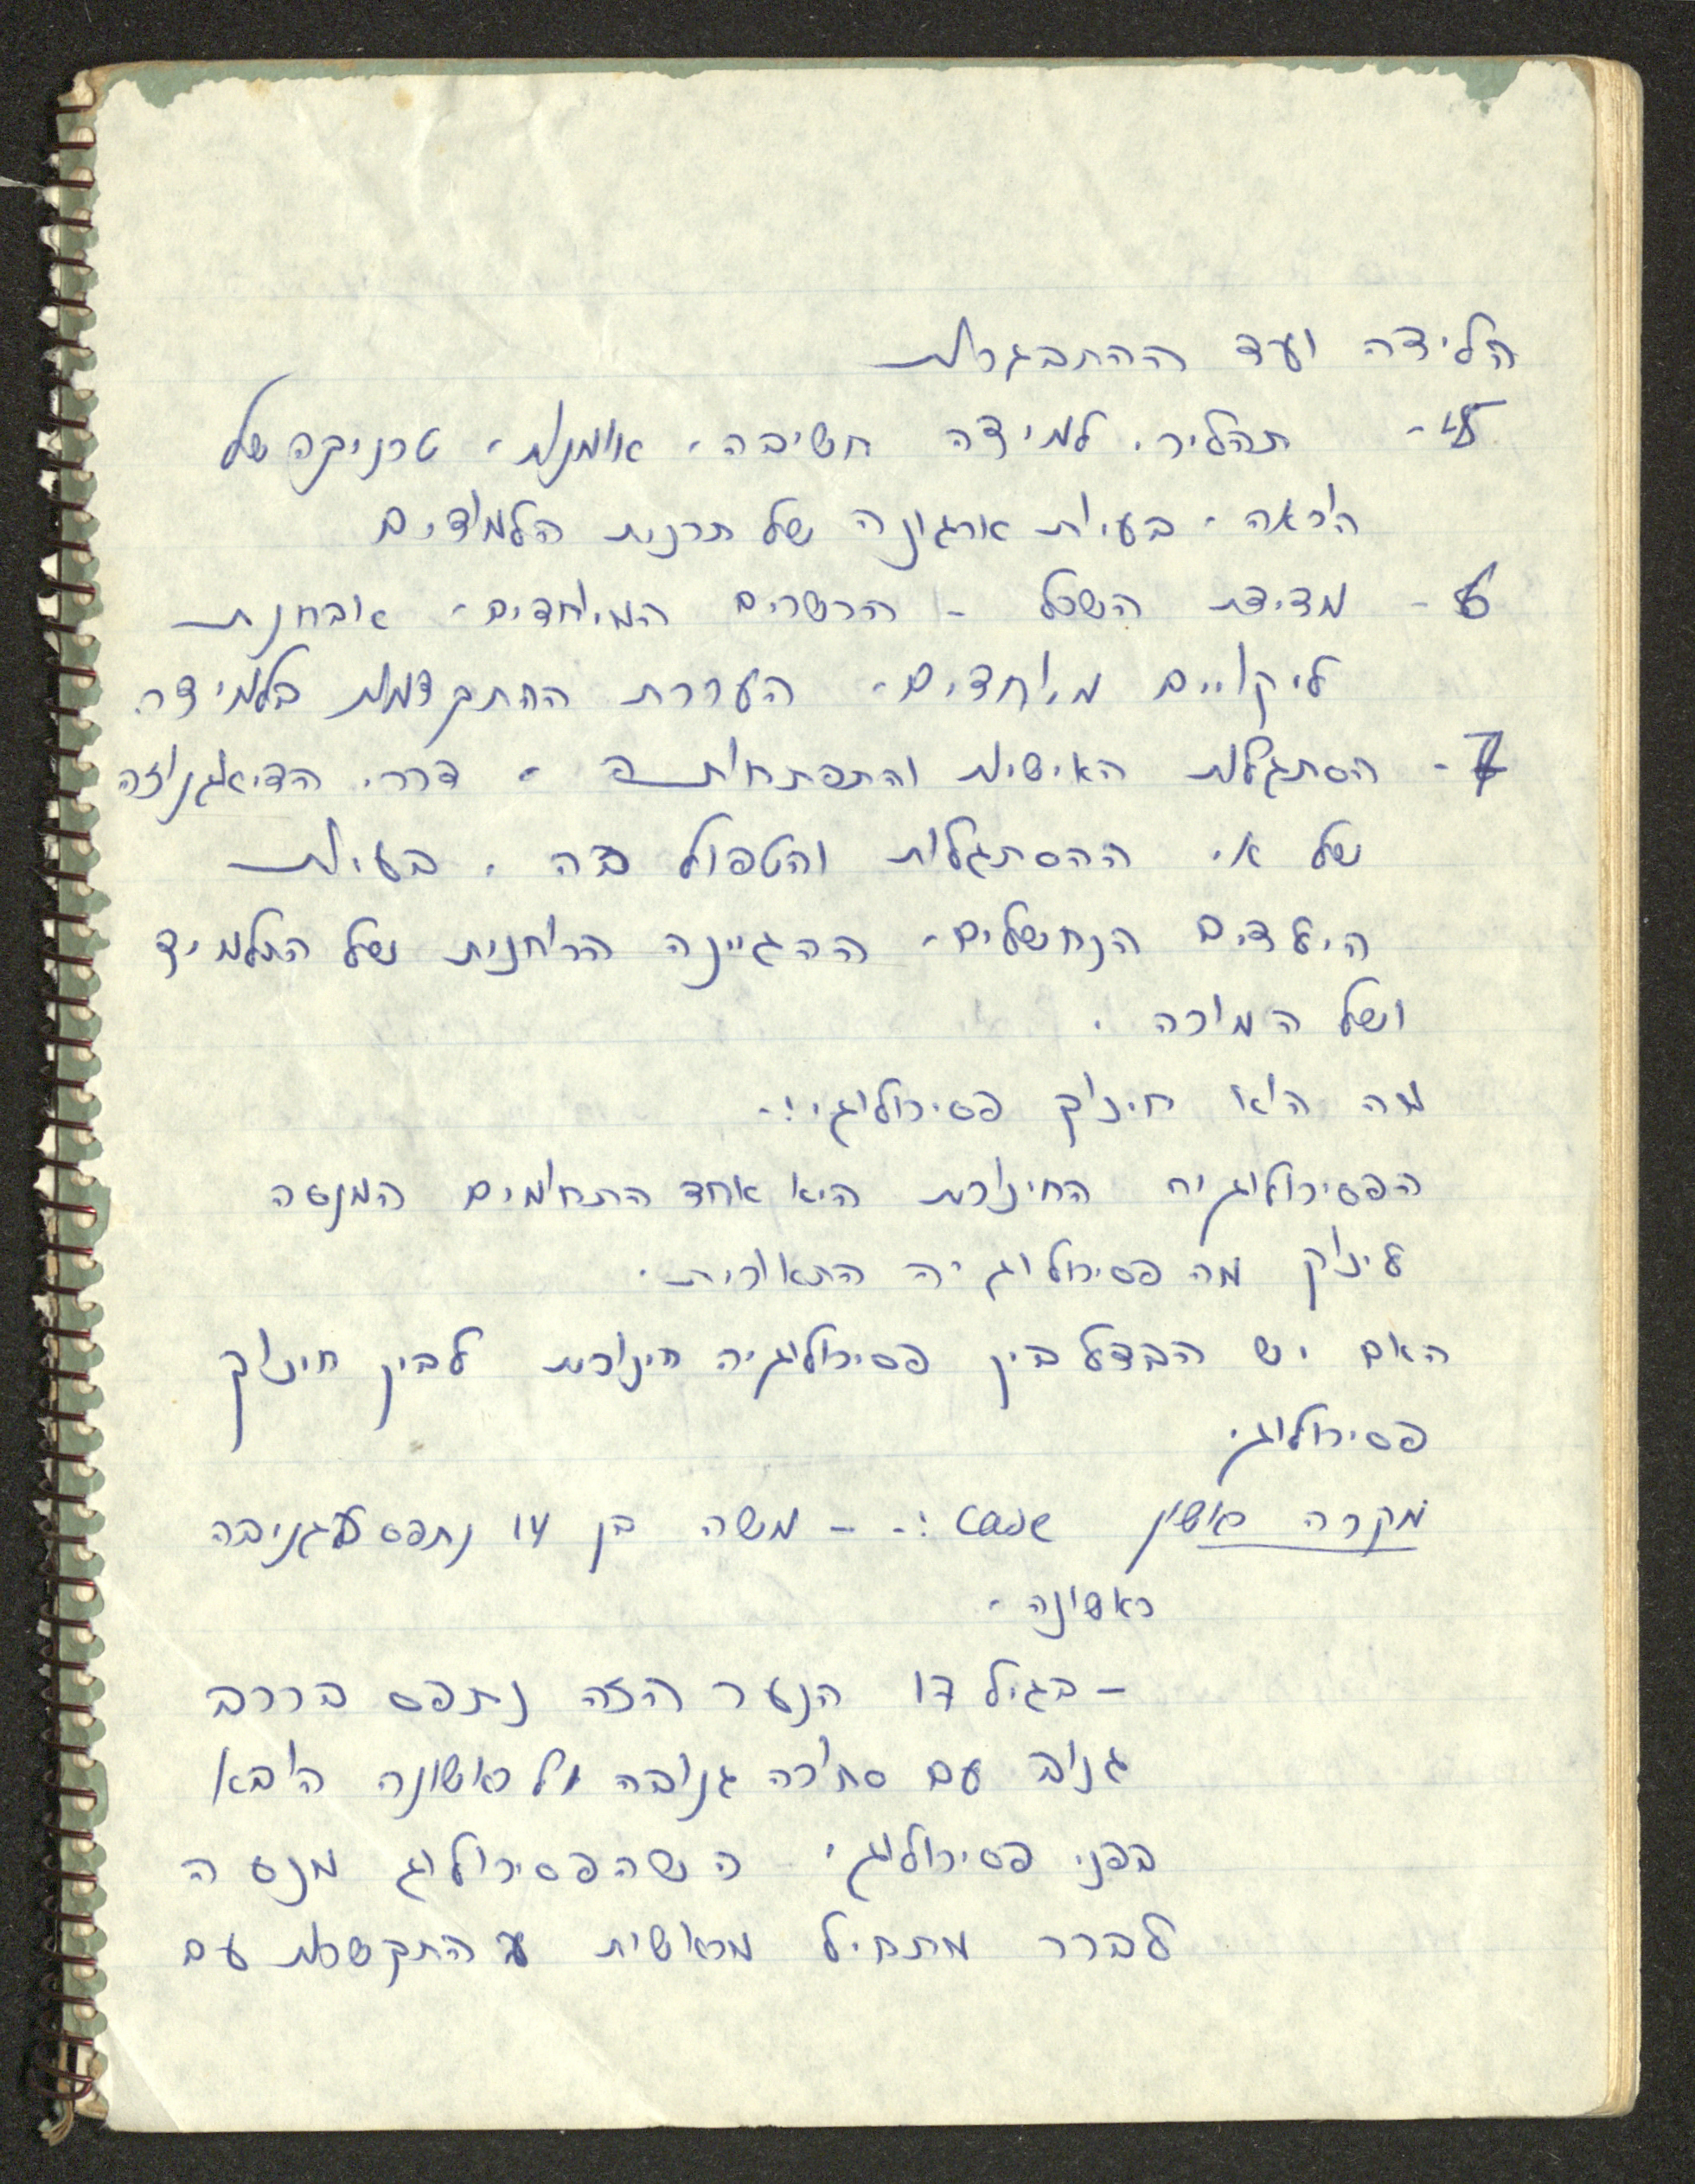 הלידה ועד ההתבגרות
5- תהליכי למידה חשיבה, אומנות, טכניקה של
הוראה. בעיות ארגונה של תכנית הלמודים
6- מדידת השכל - הכשרים המיוחדים, אובחנת
ליקויים מיוחדים, הערכת ההתקדמות בלמידה
7- הסתגלות האישיות והתפתחות, דרכי הדיאגנוזה
של אי ההסתגלות והטפול בה. בעיות
הילדים הנחשלים, ההגיינה הרוחנית של התלמיד
ושל המורה.
מה הוא חינוך פסיכולוגי:-
הפסיכולוגיה החינוכית היא אחד התחומים המנסה
לינוק מה פסיכולוגיה התאורית.
האם יש הבדל בין פסיכולוגיה חינוכית לבין חינוך
פסיכולוגי
מקרה ראשון case :- - משה בן 14 נתפס בגניבה
ראשונה.
- בגיל 17 הנער הזה נתפס ברכב
גנוב עם סחורה גנובה ראשונה הובא
בפני פסיכולוגי שהפסיכולוג מנסה
לברר מתחיל מראשית התקשרות עם